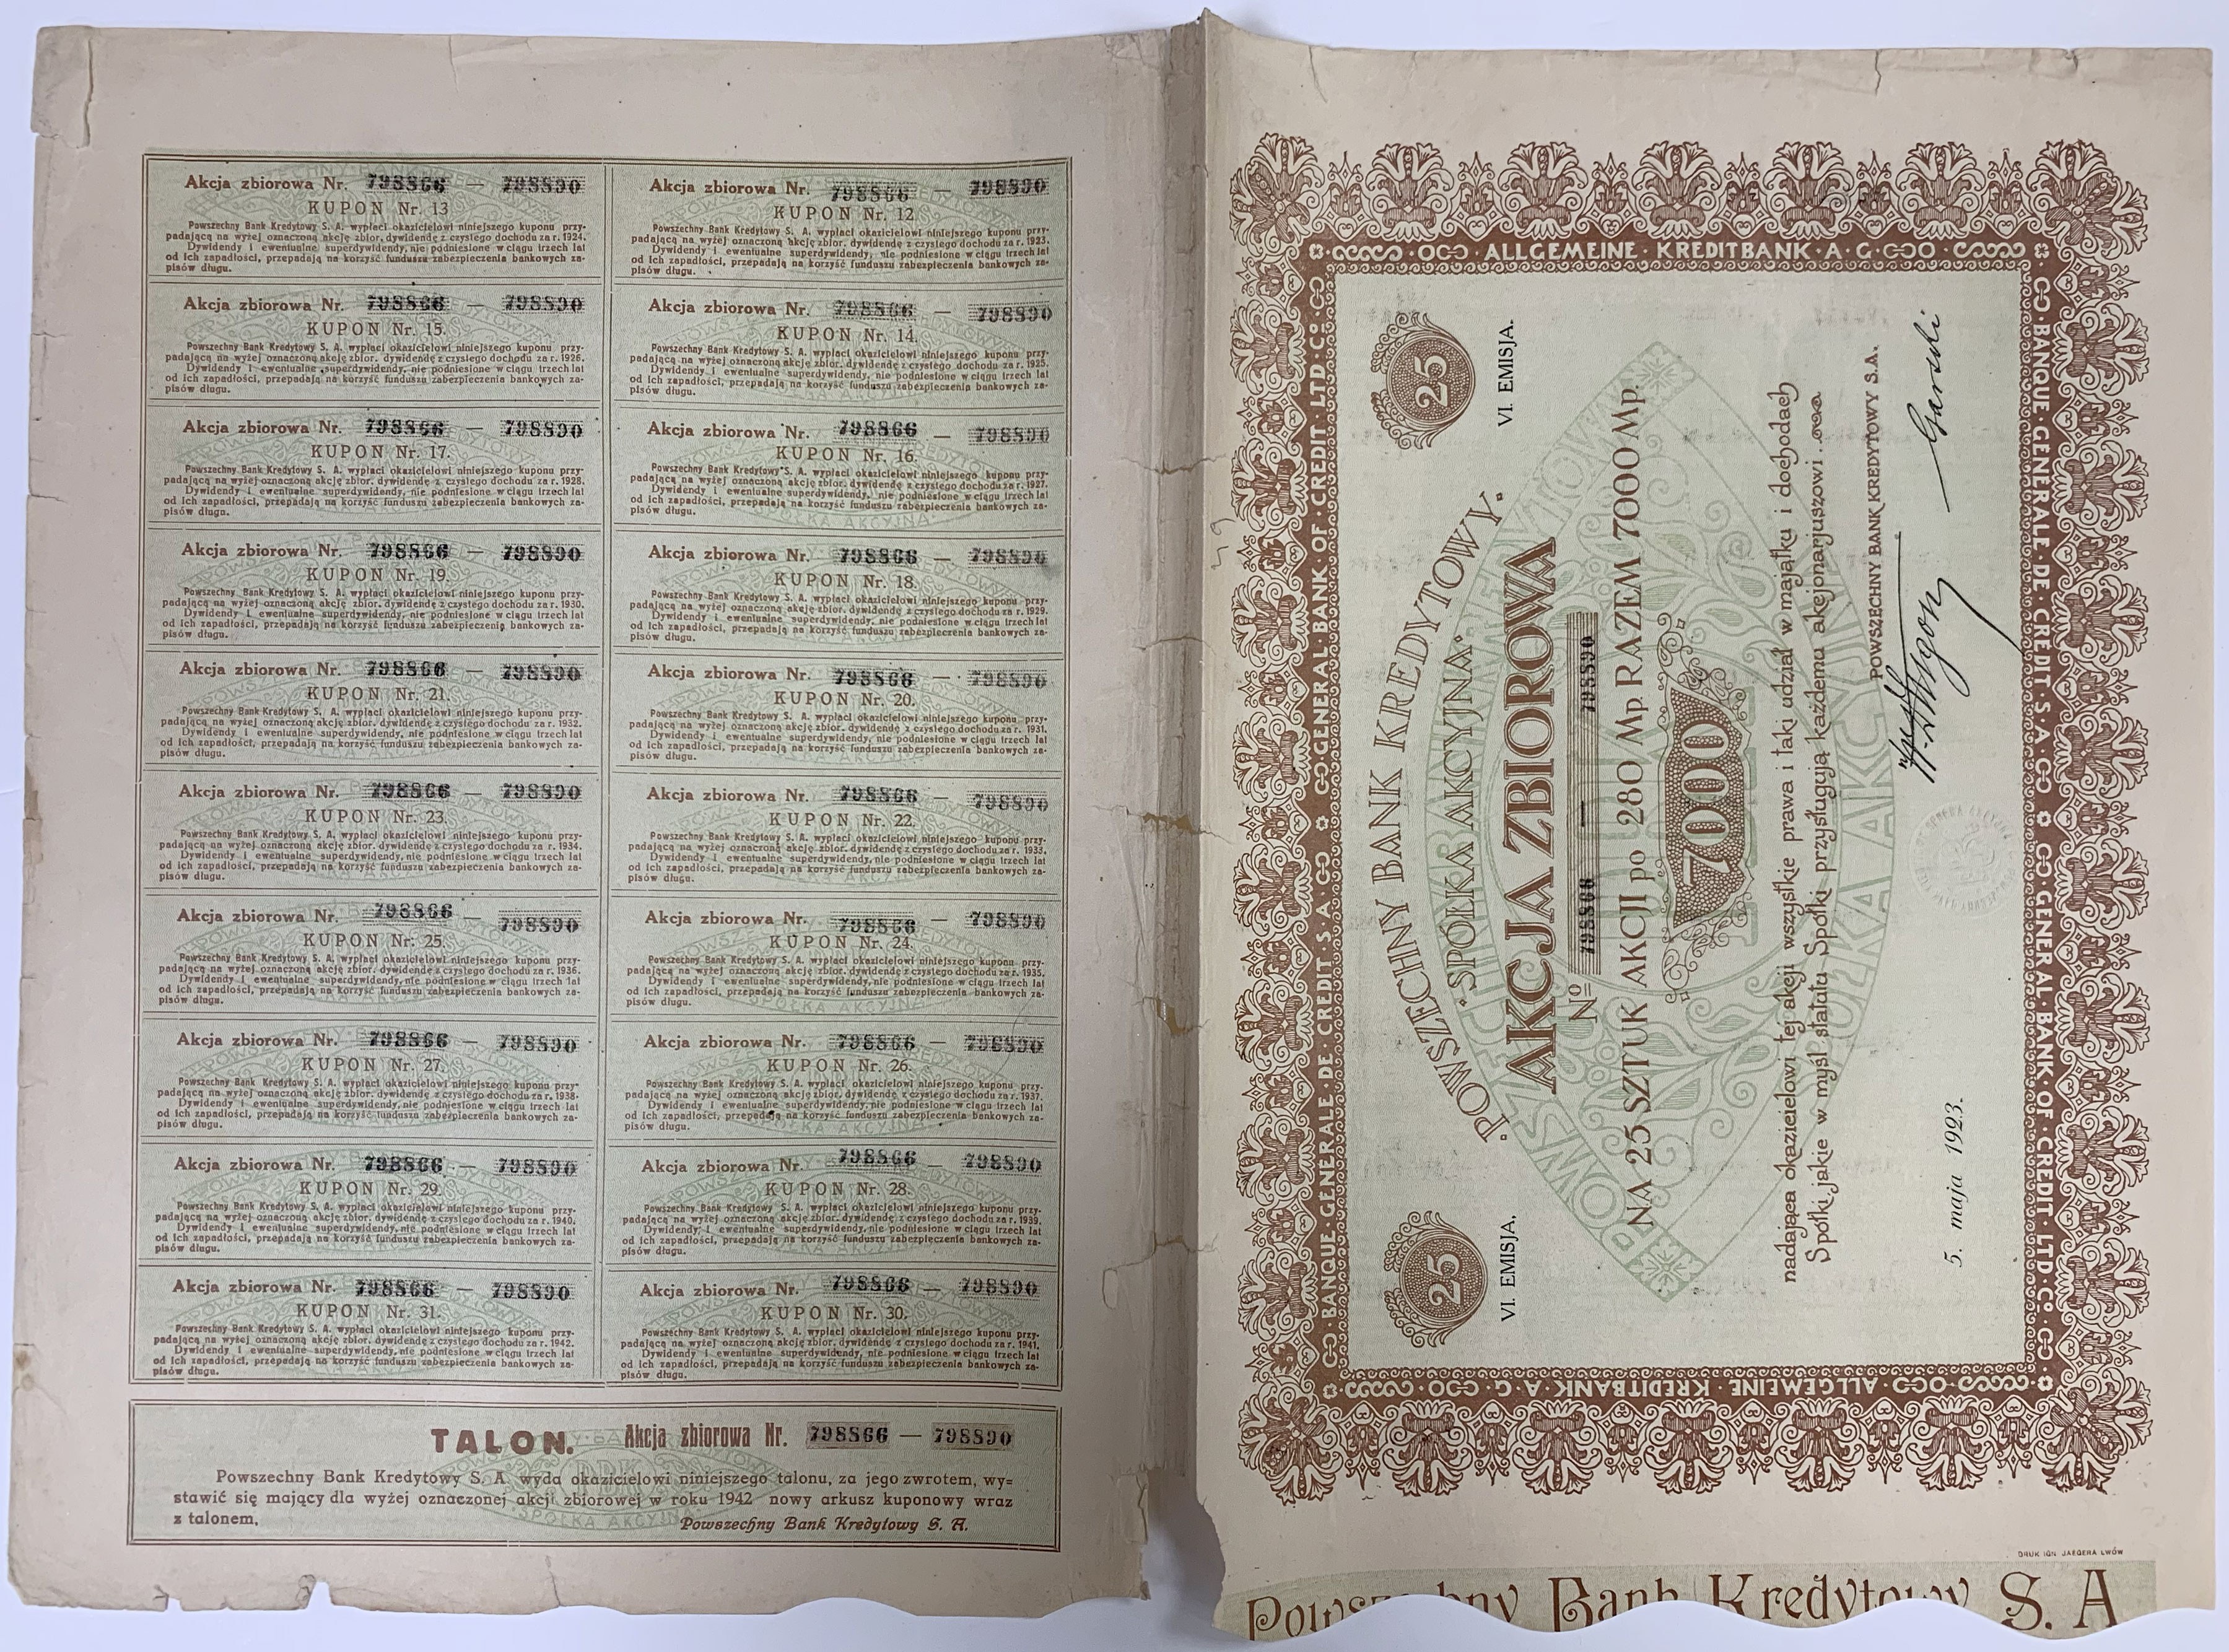 Akcja zbiorowa Nr. 798866 — 798890
KUPON Nr. 13
Powszechny Bank Kredytowy S. A. wypłaci okazicielowi niniejszego kuponu przy-
padającą na wyżej oznaczoną akcję zbior. dywidendę z czystego dochodu za r. 1924.
Dywidendy i ewentualne superdywidendy, nie podniesione w ciągu trzech lat
od ich zapadłości, przepadają na korzyść funduszu zabezpieczenia bankowych za-
pisów długu.
Akcja zbiorowa Nr. 798866 — 798890
KUPON Nr. 12
Powszechny Bank Kredytowy S. A. wypłaci okazicielowi niniejszego kuponu przy-
padającą na wyżej oznaczoną akcję zbior. dywidendę z czystego dochodu za r. 1923.
Dywidendy i ewentualne superdywidendy, nie podniesione w ciągu trzech lat
od ich zapadłości, przepadają na korzyść funduszu zabezpieczenia bankowych za-
pisów długu.
Akcja zbiorowa Nr. 798866 — 798890
KUPON Nr. 15.
Powszechny Bank Kredytowy S. A. wypłaci okazicielowi niniejszego kuponu przy-
padającą na wyżej oznaczoną akcję zbior. dywidendę z czystego dochodu za r. 1926.
Dywidendy i ewentualne superdywidendy, nie podniesione w ciągu trzech lat
od ich zapadłości, przepadają na korzyść funduszu zabezpieczenia bankowych za-
pisów długu.
Akcja zbiorowa Nr. 798866 — 798890
KUPON Nr. 14.
Powszechny Bank Kredytowy S. A. wypłaci okazicielowi niniejszego kuponu przy-
padającą na wyżej oznaczoną akcję zbior. dywidendę z czystego dochodu za r. 1925.
Dywidendy i ewentualne superdywidendy, nie podniesione w ciągu trzech lat
od ich zapadłości, przepadają na korzyść funduszu zabezpieczenia bankowych za-
pisów długu.
Akcja zbiorowa Nr. 798866 — 798890
KUPON Nr. 17.
Powszechny Bank Kredytowy S. A. wypłaci okazicielowi niniejszego kuponu przy-
padającą na wyżej oznaczoną akcję zbior. dywidendę z czystego dochodu za r. 1928.
Dywidendy i ewentualne superdywidendy, nie podniesione w ciągu trzech lat
od ich zapadłości, przepadają na korzyść funduszu zabezpieczenia bankowych za-
pisów długu.
Akcja zbiorowa Nr. 798866 — 798890
KUPON Nr. 16.
Powszechny Bank Kredytowy S. A. wypłaci okazicielowi niniejszego kuponu przy-
padającą na wyżej oznaczoną akcję zbior. dywidendę z czystego dochodu za r. 1927.
Dywidendy i ewentualne superdywidendy, nie podniesione w ciągu trzech lat
od ich zapadłości, przepadają na korzyść funduszu zabezpieczenia bankowych za-
pisów długu.
Akcja zbiorowa Nr. 798866 — 798890
KUPON Nr. 19.
Powszechny Bank Kredytowy S. A. wypłaci okazicielowi niniejszego kuponu przy-
padającą na wyżej oznaczoną akcję zbior. dywidendę z czystego dochodu za r. 1930.
Dywidendy i ewentualne superdywidendy, nie podniesione w ciągu trzech lat
od ich zapadłości, przepadają na korzyść funduszu zabezpieczenia bankowych za-
pisów długu.
Akcja zbiorowa Nr. 798866 — 798890
KUPON Nr. 18.
Powszechny Bank Kredytowy S. A. wypłaci okazicielowi niniejszego kuponu przy-
padającą na wyżej oznaczoną akcję zbior. dywidendę z czystego dochodu za r. 1929.
Dywidendy i ewentualne superdywidendy, nie podniesione w ciągu trzech lat
od ich zapadłości, przepadają na korzyść funduszu zabezpieczenia bankowych za-
pisów długu.
Akcja zbiorowa Nr. 798866 — 798890
KUPON Nr. 21.
Powszechny Bank Kredytowy S. A. wypłaci okazicielowi niniejszego kuponu przy-
padającą na wyżej oznaczoną akcję zbior. dywidendę z czystego dochodu za r. 1932.
Dywidendy i ewentualne superdywidendy, nie podniesione w ciągu trzech lat
od ich zapadłości, przepadają na korzyść funduszu zabezpieczenia bankowych za-
pisów długu.
Akcja zbiorowa Nr. 798866 — 798890
KUPON Nr. 20.
Powszechny Bank Kredytowy S. A. wypłaci okazicielowi niniejszego kuponu przy-
padającą na wyżej oznaczoną akcję zbior. dywidendę z czystego dochodu za r. 1931.
Dywidendy i ewentualne superdywidendy, nie podniesione w ciągu trzech lat
od ich zapadłości, przepadają na korzyść funduszu zabezpieczenia bankowych za-
pisów długu.
Akcja zbiorowa Nr. 798866 — 798890
KUPON Nr. 23.
Powszechny Bank Kredytowy S. A. wypłaci okazicielowi niniejszego kuponu przy-
padającą na wyżej oznaczoną akcję zbior. dywidendę z czystego dochodu za r. 1934.
Dywidendy i ewentualne superdywidendy, nie podniesione w ciągu trzech lat
od ich zapadłości, przepadają na korzyść funduszu zabezpieczenia bankowych za-
pisów długu.
Akcja zbiorowa Nr. 798866 — 798890
KUPON Nr. 22.
Powszechny Bank Kredytowy S. A. wypłaci okazicielowi niniejszego kuponu przy-
padającą na wyżej oznaczoną akcję zbior. dywidendę z czystego dochodu za r. 1933.
Dywidendy i ewentualne superdywidendy, nie podniesione w ciągu trzech lat
od ich zapadłości, przepadają na korzyść funduszu zabezpieczenia bankowych za-
pisów długu.
Akcja zbiorowa Nr. 798866 — 798890
KUPON Nr. 25.
Powszechny Bank Kredytowy S. A. wypłaci okazicielowi niniejszego kuponu przy-
padającą na wyżej oznaczoną akcję zbior. dywidendę z czystego dochodu za r. 1936.
Dywidendy i ewentualne superdywidendy, nie podniesione w ciągu trzech lat
od ich zapadłości, przepadają na korzyść funduszu zabezpieczenia bankowych za-
pisów długu.
Akcja zbiorowa Nr. 798866 — 798890
KUPON Nr. 24.
Powszechny Bank Kredytowy S. A. wypłaci okazicielowi niniejszego kuponu przy-
padającą na wyżej oznaczoną akcję zbior. dywidendę z czystego dochodu za r. 1935.
Dywidendy i ewentualne superdywidendy, nie podniesione w ciągu trzech lat
od ich zapadłości, przepadają na korzyść funduszu zabezpieczenia bankowych za-
pisów długu.
Akcja zbiorowa Nr. 798866 — 798890
KUPON Nr. 27.
Powszechny Bank Kredytowy S. A. wypłaci okazicielowi niniejszego kuponu przy-
padającą na wyżej oznaczoną akcję zbior. dywidendę z czystego dochodu za r. 1938.
Dywidendy i ewentualne superdywidendy, nie podniesione w ciągu trzech lat
od ich zapadłości, przepadają na korzyść funduszu zabezpieczenia bankowych za-
pisów długu.
Akcja zbiorowa Nr. 798866 — 798890
KUPON Nr. 26.
Powszechny Bank Kredytowy S. A. wypłaci okazicielowi niniejszego kuponu przy-
padającą na wyżej oznaczoną akcję zbior. dywidendę z czystego dochodu za r. 1937.
Dywidendy i ewentualne superdywidendy, nie podniesione w ciągu trzech lat
od ich zapadłości, przepadają na korzyść funduszu zabezpieczenia bankowych za-
pisów długu.
Akcja zbiorowa Nr. 798866 — 798890
KUPON Nr. 29.
Powszechny Bank Kredytowy S. A. wypłaci okazicielowi niniejszego kuponu przy-
padającą na wyżej oznaczoną akcję zbior. dywidendę z czystego dochodu za r. 1940.
Dywidendy i ewentualne superdywidendy, nie podniesione w ciągu trzech lat
od ich zapadłości, przepadają na korzyść funduszu zabezpieczenia bankowych za-
pisów długu.
Akcja zbiorowa Nr. 798866 — 798890
KUPON Nr. 28.
Powszechny Bank Kredytowy S. A. wypłaci okazicielowi niniejszego kuponu przy-
padającą na wyżej oznaczoną akcję zbior. dywidendę z czystego dochodu za r. 1939.
Dywidendy i ewentualne superdywidendy, nie podniesione w ciągu trzech lat
od ich zapadłości, przepadają na korzyść funduszu zabezpieczenia bankowych za-
pisów długu.
Akcja zbiorowa Nr. 798866 — 798890
KUPON Nr. 31.
Powszechny Bank Kredytowy S. A. wypłaci okazicielowi niniejszego kuponu przy-
padającą na wyżej oznaczoną akcję zbior. dywidendę z czystego dochodu za r. 1942.
Dywidendy i ewentualne superdywidendy, nie podniesione w ciągu trzech lat
od ich zapadłości, przepadają na korzyść funduszu zabezpieczenia bankowych za-
pisów długu.
Akcja zbiorowa Nr. 798866 — 798890
KUPON Nr. 30.
Powszechny Bank Kredytowy S. A. wypłaci okazicielowi niniejszego kuponu przy-
padającą na wyżej oznaczoną akcję zbior. dywidendę z czystego dochodu za r. 1941.
Dywidendy i ewentualne superdywidendy, nie podniesione w ciągu trzech lat
od ich zapadłości, przepadają na korzyść funduszu zabezpieczenia bankowych za-
pisów długu.
TALON. Akcja zbiorowa Nr. 798866 — 798890
Powszechny Bank Kredytowy S. A. wyda okazicielowi niniejszego talonu, za jego zwrotem, wy=
stawić się mający dla wyżej oznaczonej akcji zbiorowej w roku 1942 nowy arkusz kuponowy wraz
z talonem.
Powszechny Bank Kredytowy S. A.
BANQUE·GENERALE·DE·CREDIT·S·A· GENERAL·BANK·OF·CREDIT·LTD·Cº·
ALLGEMEINE·KREDITBANK·A·G·
25
25
VI. EMISJA.
VI. EMISJA.
POWSZECHNY BANK KREDYTOWY
SPÓŁKA AKCYJNA
AKCJA ZBIOROWA
Nº 798866 — 798890
NA 25 SZTUK AKCJI po 280 Mp RAZEM 7000 Mp.
7000
nadająca okazicielowi tej akcji wszystkie prawa i taki udział w majątku i dochodach
Spółki, jakie w myśl statutu Spółki przysługują każdemu akcjonarjuszowi.
POWSZECHNY BANK KREDYTOWY S.A.
5. maja 1923.
ALLGEMEINE·KREDITBANK·A·G·
GENERAL·BANK·OF·CREDIT·LTD·Cº· BANQUE·GENERALE·DE·CREDIT·S·A·
DRUK IGN. JAEGERA LWÓW
Powszechny Bank Kredytowy S. A